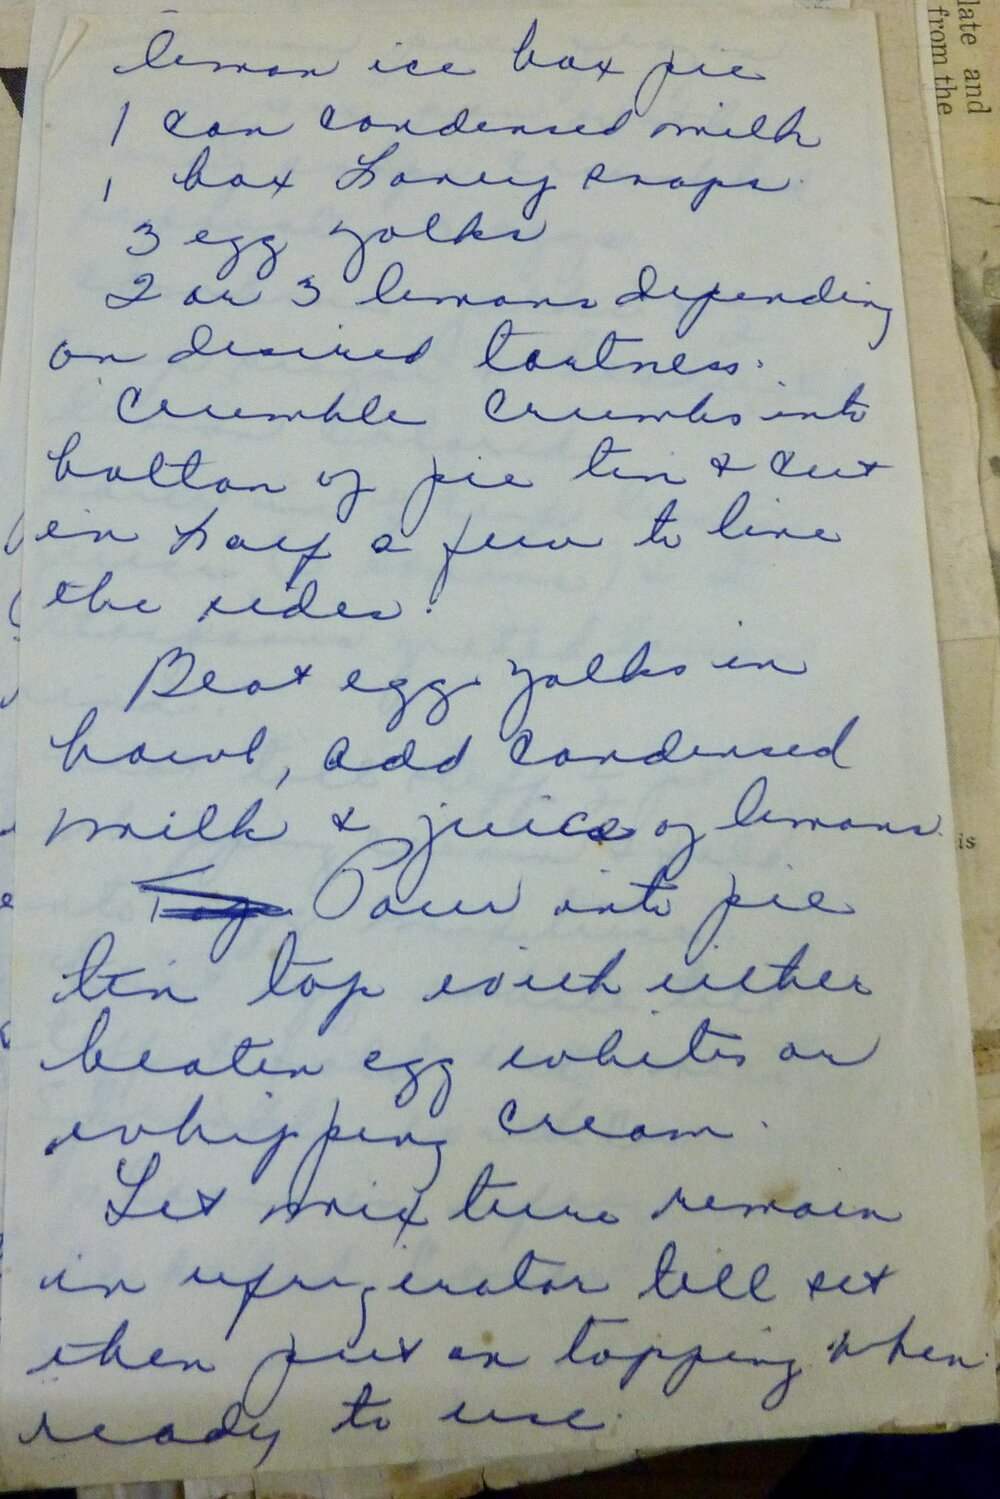 lemon ice box pie
1 can condensed milk
1 box honey snaps.
3 egg yolks
2 or 3 lemons depending
on desired tartness.
Crumble crumbs into
bottom of pie tin & cut
in half a few to line
the sides.
Beat egg yolks in
bowl, add condensed
milk & juice of lemons.
Pour into pie
tin top with either
beaten egg whites or
whipping cream.
Let mixture remain
in refrigerator till set
then put on topping when
ready to use.
late and
from the
is